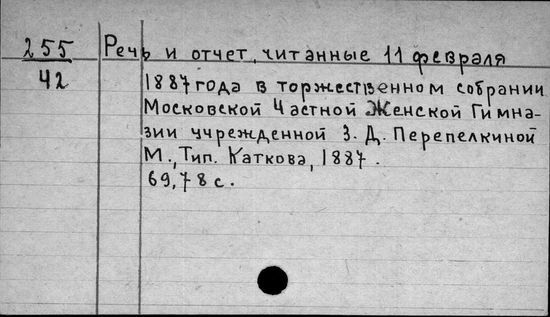 255
42
Речь и отчет, читанные 11 февраля
1887 года в торжественном собрании
Московской Частной Женской Гимна-
зии учрежденной З. Д. Перепелкиной
М., Тип. Каткова, 1887.
69, 78 с.